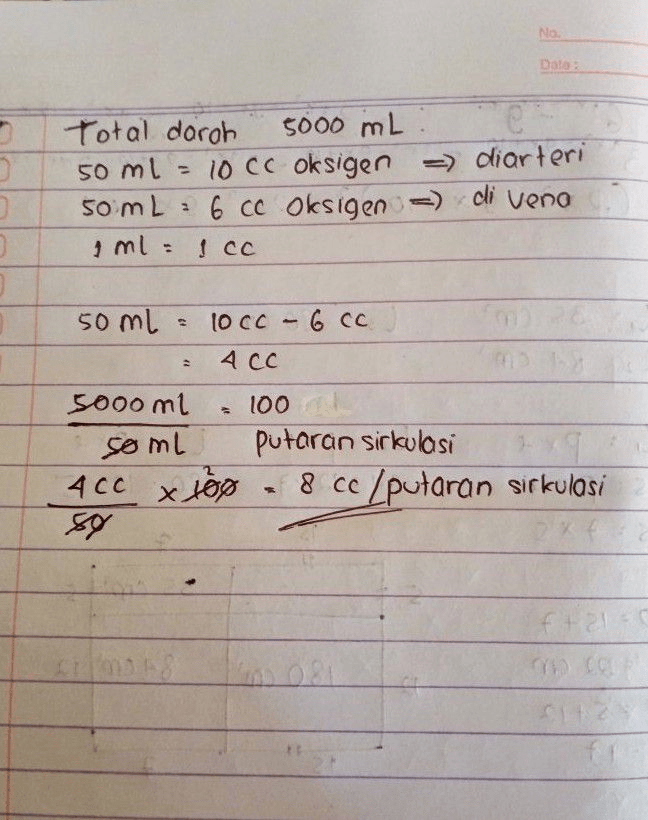 No.
Date :
Total darah 5000 mL.
50 ml = 10 cc oksigen => diarteri
50 mL = 6 cc oksigen => di vena
1 ml = 1 cc
50 ml = 10 cc - 6 cc
= 4 cc
5000 ml = 100
50 ml putaran sirkulasi
4 cc x 100 2 = 8 cc / putaran sirkulasi
50